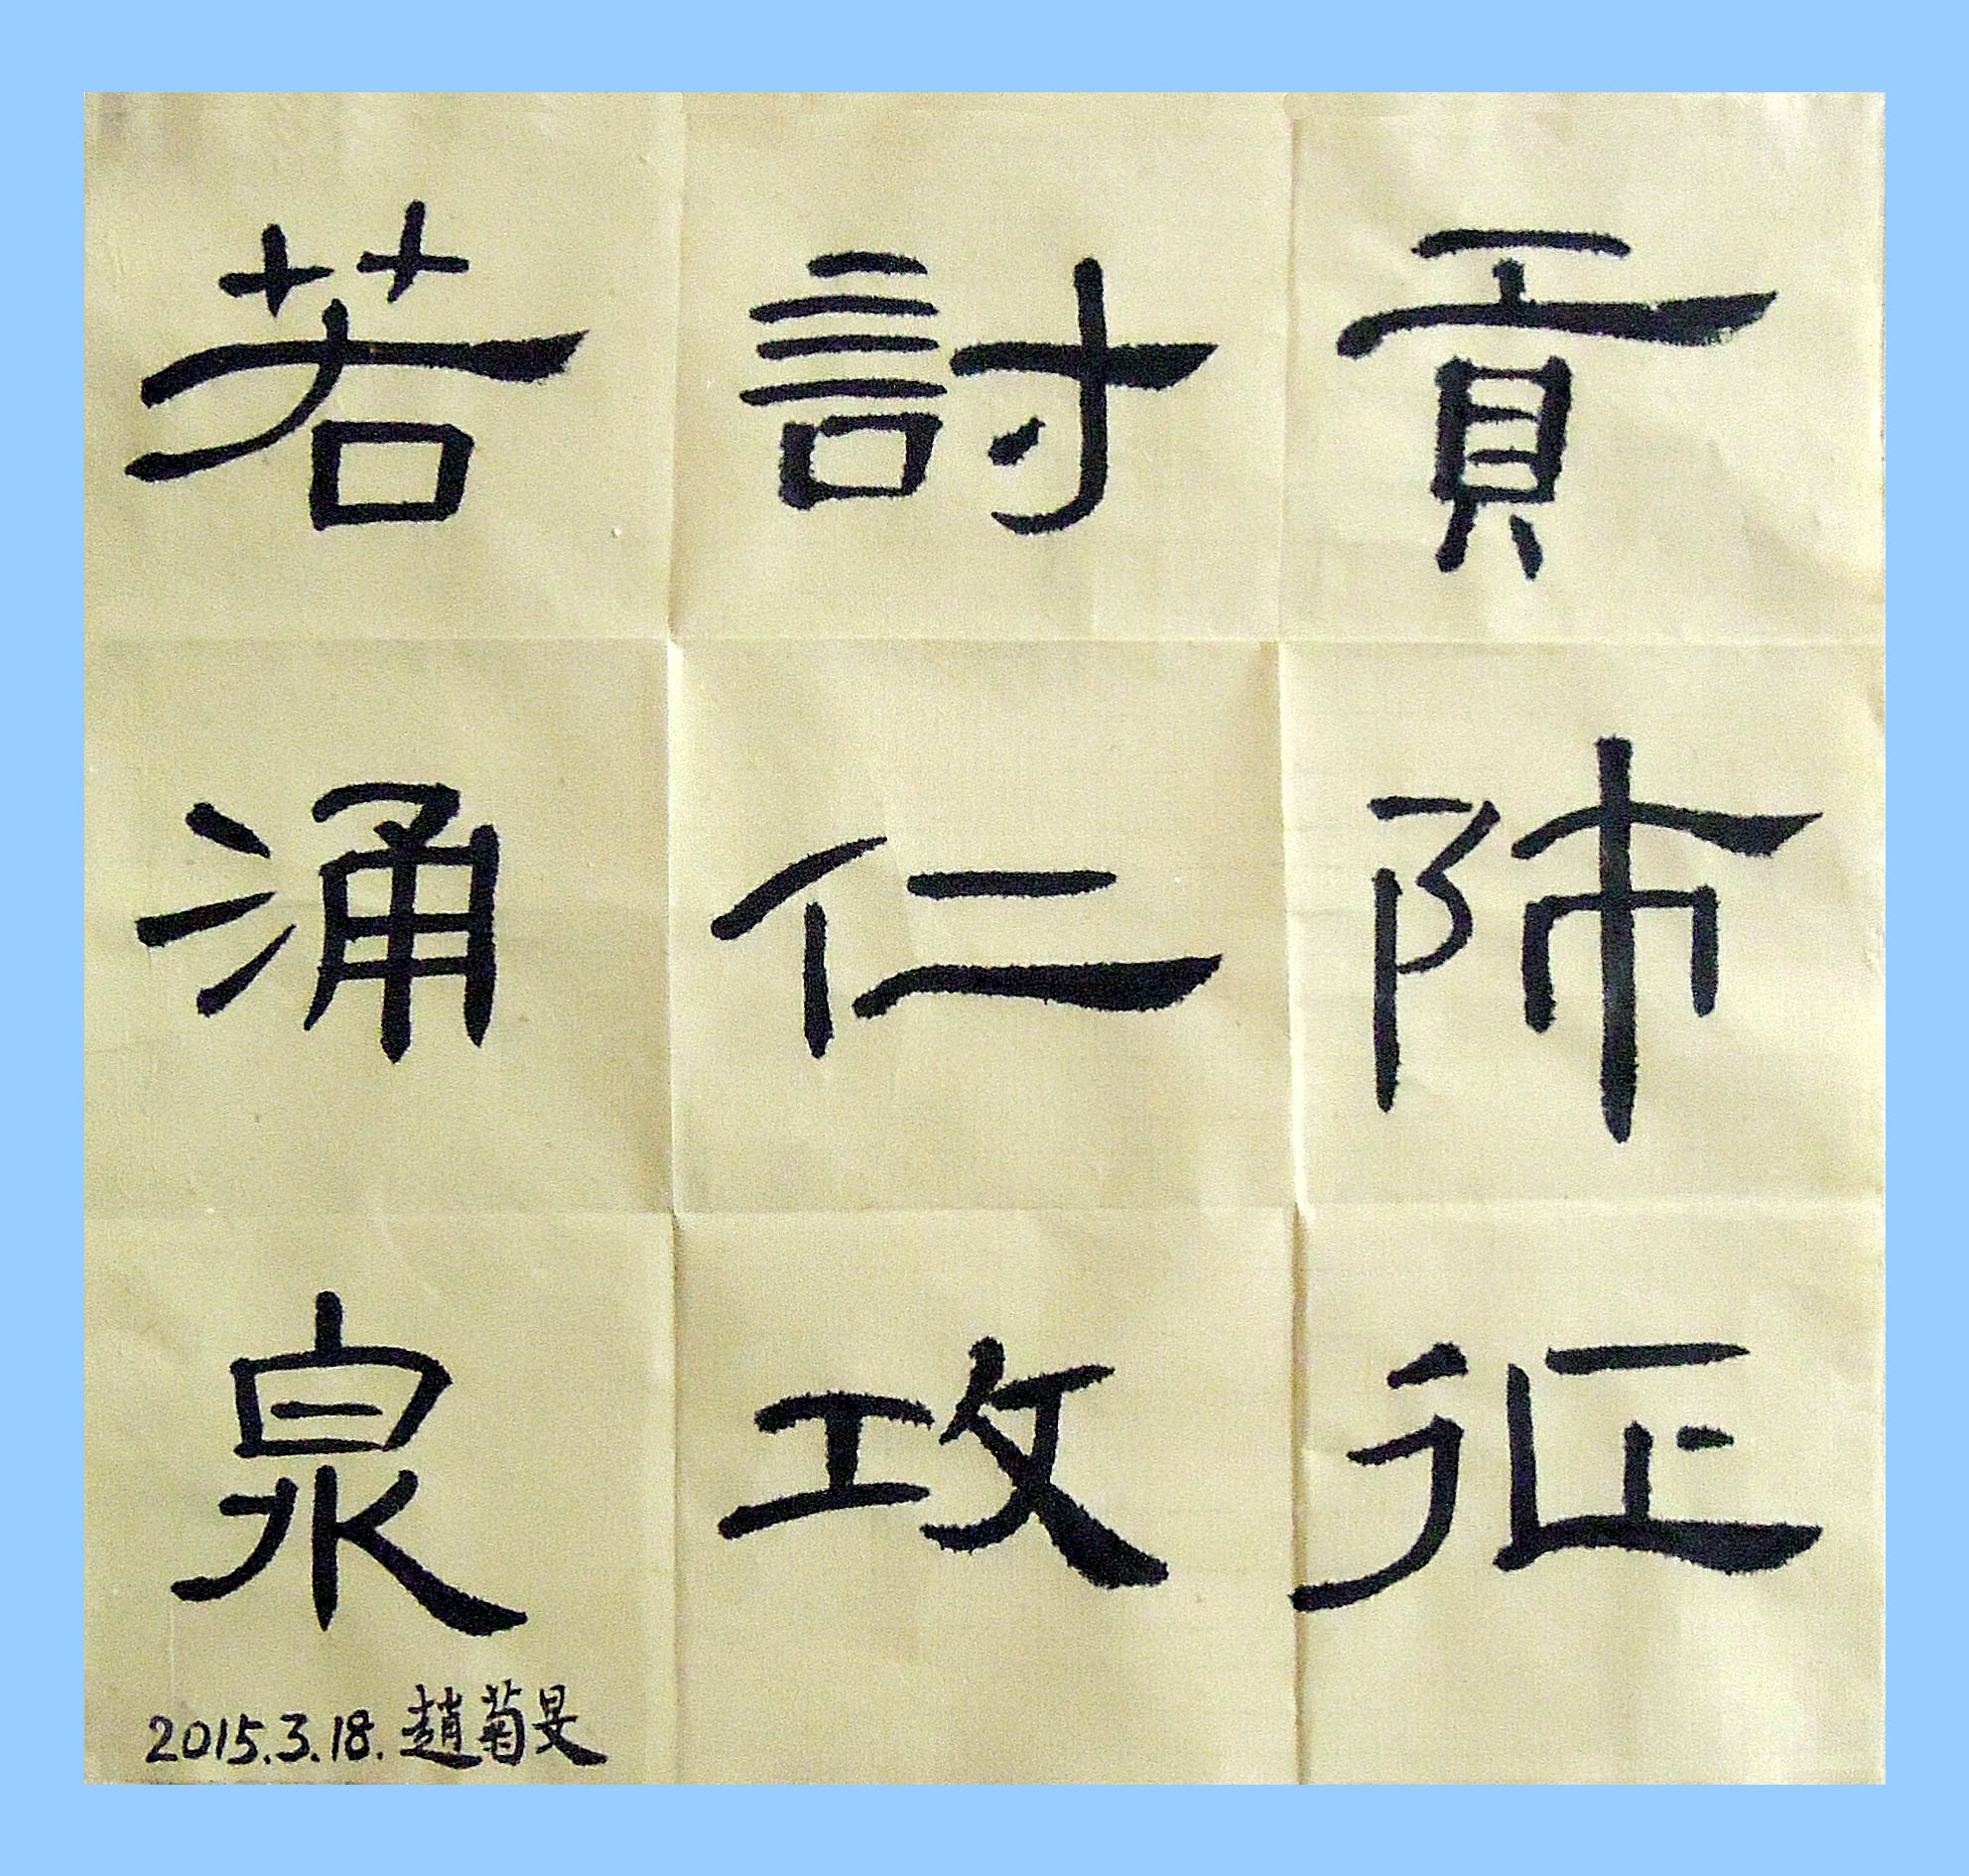 貢師征
討仁攻
若涌泉
2015.3.18.趙菊旻